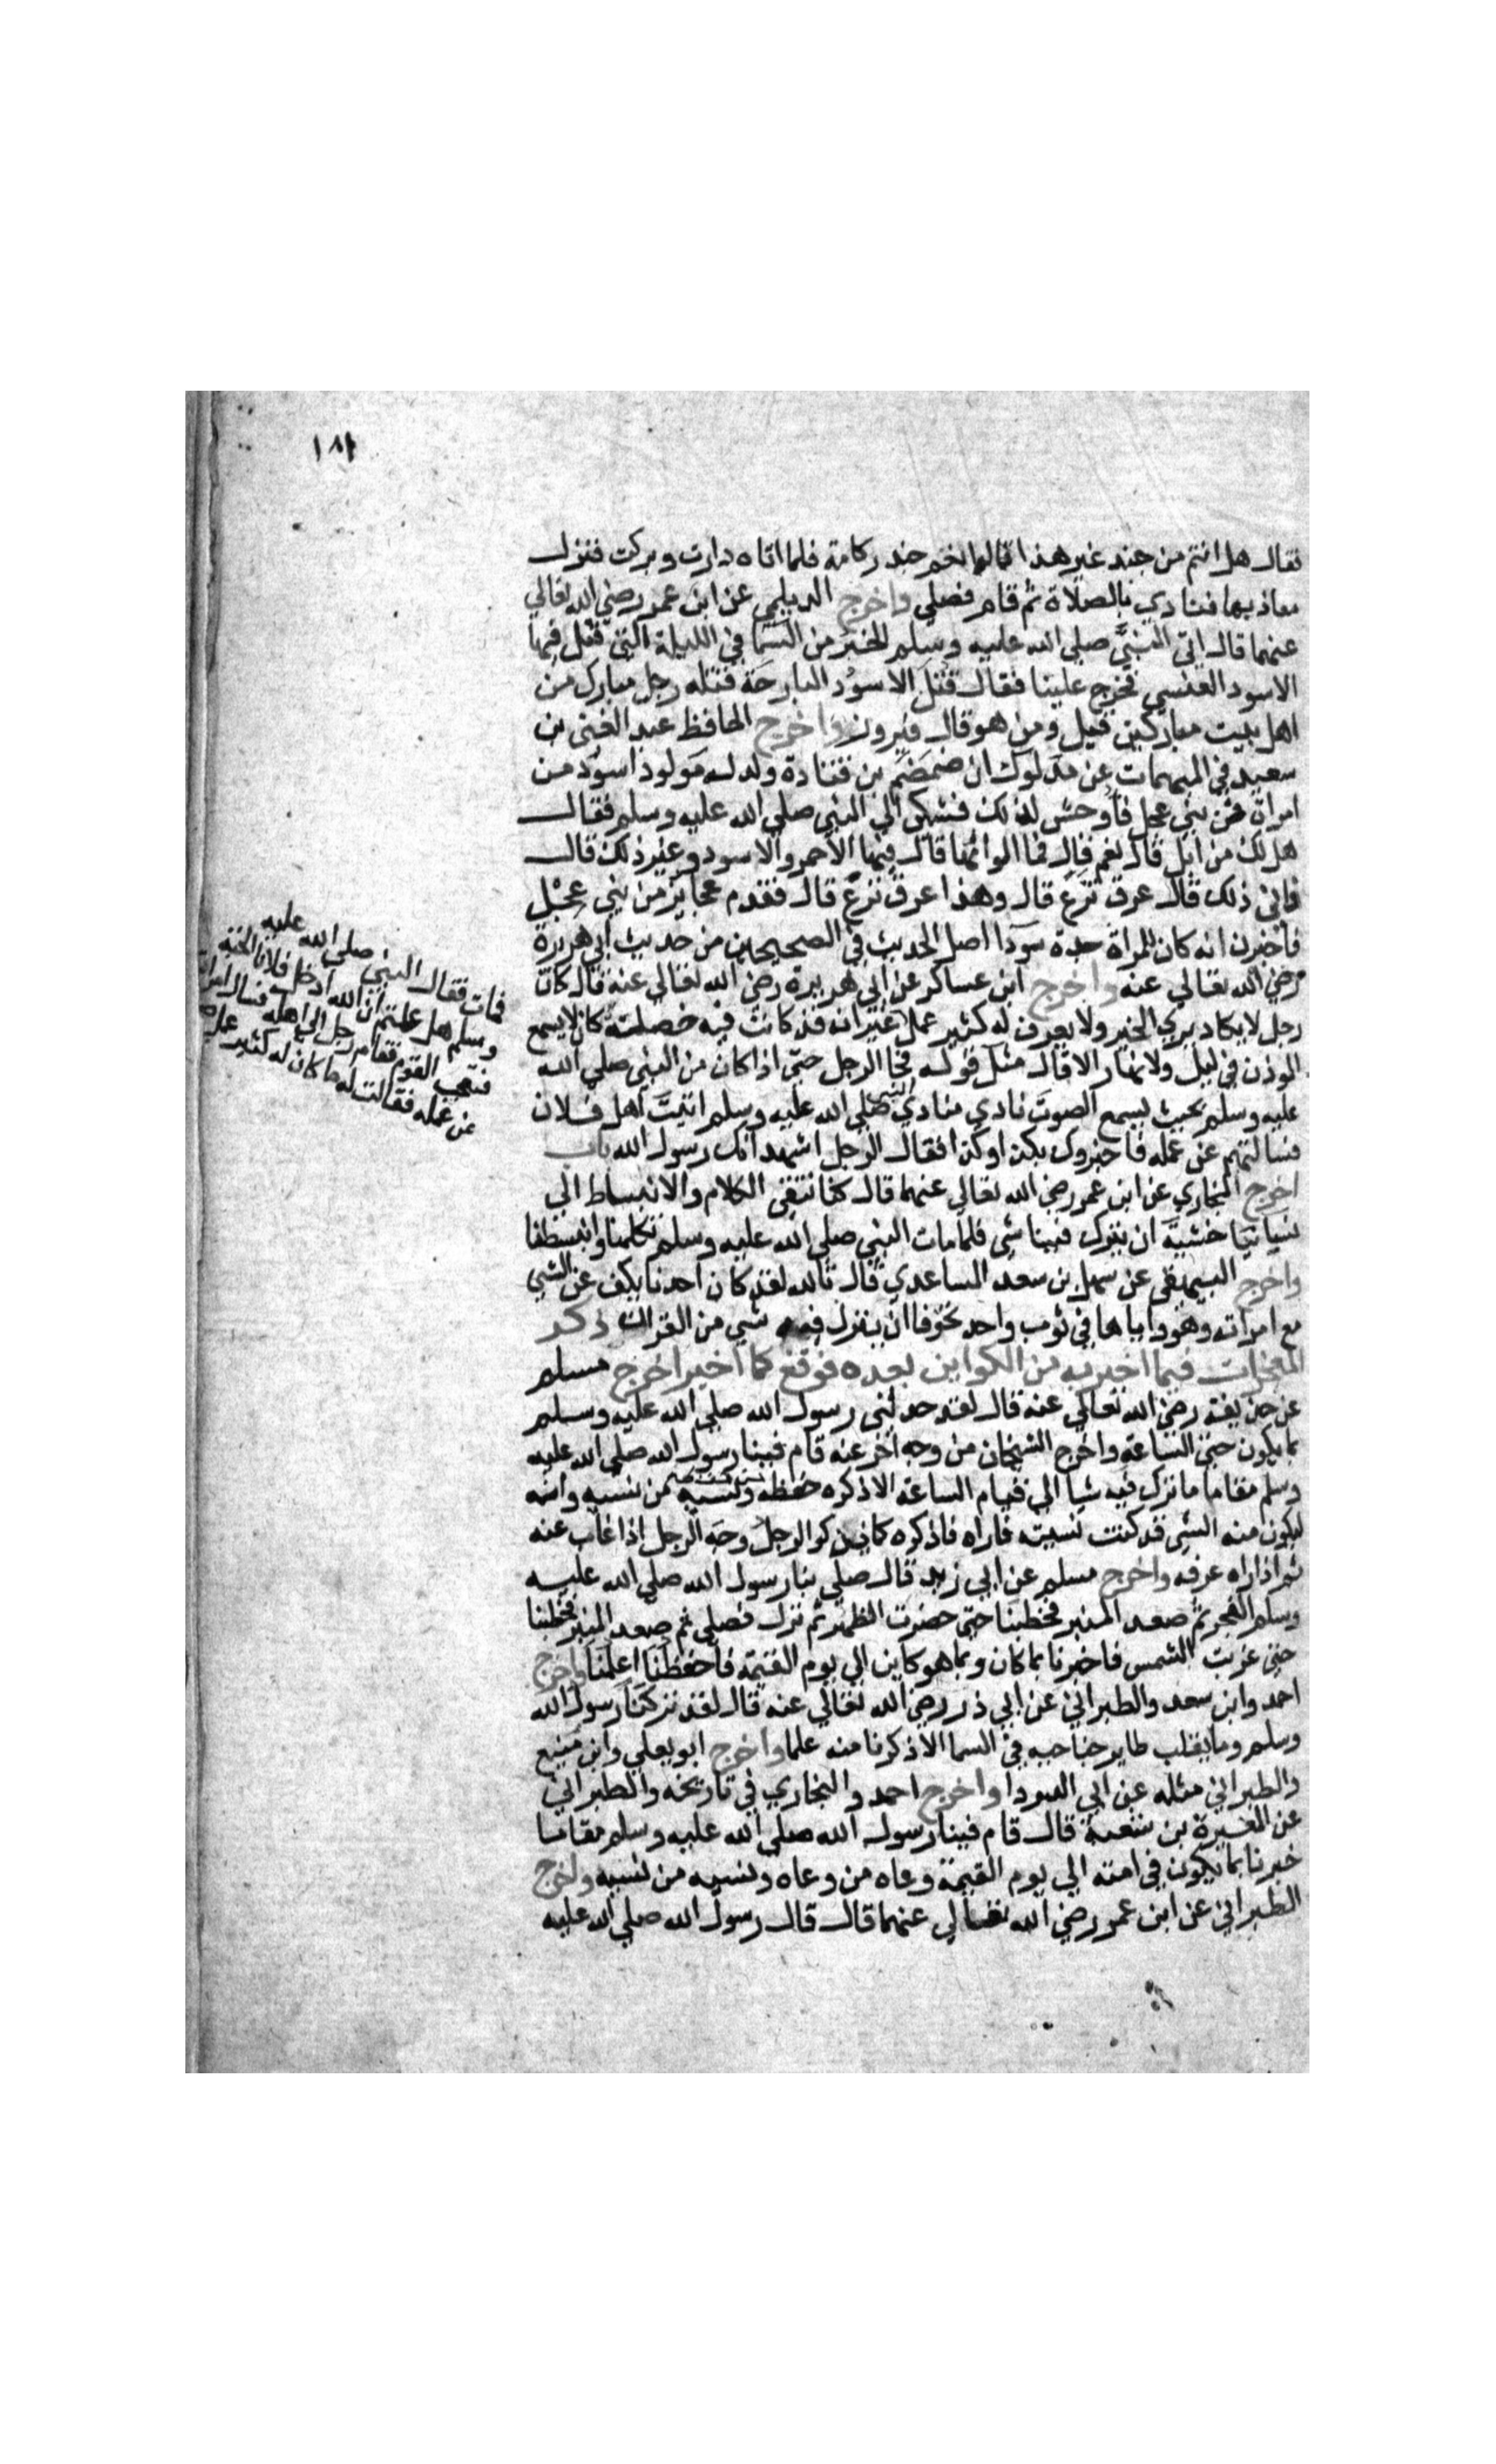 ١٨١
فقال هل انتم من جند غير هذا قالوا نعم جند ركامة فلما اتاه دارت وبركت فنزل
معاذ بها فنادي بالصلاة ثم قام فصلي واخرج الديلمي عن ابن عمر رضي الله تعالي
عنهما قال اتي النبي صلي الله عليه وسلم الخبر من السما في الليلة التي قتل فيها
الاسود العنسي فخرج علينا فقال قتل الاسود البارحة قتله رجل مبارك من
اهل بيت مباركين قيل ومن هو قال فيروز واخرج الحافظ عبد الغني بن
سعيد في المبهمات عن مدلوك ان ضمضم بن قتادة ولد له مولود اسود من
امراة من بني عجل فاوحش لذلك فشكي الي النبي صلي الله عليه وسلم فقال
هل لك من ابل قال نعم قال فما الوانها قال فيها الاحمر والاسود وغير ذلك قال
فاني ذلك قال عرق نزع قال وهذا عرق نزع قال فقدم عجايز من بني عجل
فاخبرن انه كان للمراة جدة سودا اصل الحديث في الصحيحين من حديث ابي هريرة
رضي الله تعالي عنه واخرج ابن عساكر عن ابي هريرة رضي الله تعالي عنه قال كان
رجل لا يكاد يري الخير ولا يعرف له كثير عمل غير انه قد كانت فيه خصلة كان لا يسمع
الموذن في ليل ولا نهار الا قال مثل قوله فجا الرجل حتي اذا كان من النبي صلي الله
عليه وسلم بحيث يسمع الصوت نادي منادي النبي صلي الله عليه وسلم اتيت اهل فلان
فسالتهم عن عمله فاخبروك بكذا وكذا فقال الرجل اشهد انك رسول الله باب
اخرج البخاري عن ابن عمر رضي الله تعالي عنهما قال كنا نتقي الكلام والانبساط الي
نسيانيا خشية ان ينزل فينا شي فلما مات النبي صلي الله عليه وسلم تكلمنا وانبسطنا
واخرج البيهقي عن سهل بن سعد الساعدي قال تالله لقد كان احدنا يكف عن الشي
مع امراته وهو واياها في ثوب واحد تخوفا ان ينزل فيه شي من القران ذكر
المعجزات فيما اخبر به من الكواين بعده فوقع كما اخبر اخرج مسلم
عن حذيفة رضي الله تعالي عنه قال لقد حدثني رسول الله صلي الله عليه وسلم
بما يكون حتي الساعة واخرج الشيخان من وجه اخر عنه قام فينا رسول الله صلي الله عليه
وسلم مقاما ما ترك فيه شيا الي قيام الساعة الا ذكره حفظه ونسيه من نسيه وانه
ليكون منه الشي قد كنت نسيته فاراه فاذكره كما يذكر الرجل وجه الرجل اذا غاب عنه
ثم اذا راه عرفه واخرج مسلم عن ابي زيد قال صلي بنا رسول الله صلي الله عليه
وسلم الفجر ثم صعد المنبر فخطبنا حتي حضرت الظهر ثم نزل فصلي ثم صعد المنبر فخطبنا
حتي غربت الشمس فاخبرنا بما كان وبما هو كاين الي يوم القيمة فاحفظنا اعلمنا واخرج
احمد وابن سعد والطبراني عن ابي ذر رضي الله تعالي عنه قال لقد تركنا رسول الله
وسلم وما يقلب طاير جناحيه في السما الا ذكرنا منه علما واخرج ابو يعلي وابن منيع
والطبراني مثله عن ابي الدردا واخرج احمد والبخاري في تاريخه والطبراني
عن المغيرة بن شعبة قال قام فينا رسول الله صلي الله عليه وسلم مقاما
خبرنا بما يكون في امته الي يوم القيمة وعاه من وعاه ونسيه من نسيه واخرج
الطبراني عن ابن عمر رضي الله تعالي عنهما قال قال رسول الله صلي الله عليه
فمات فقال النبي صلي الله عليه
وسلم هل علمتم ان الله ادخل فلانا الجنة
فتعجب القوم فقام رجل الي اهله فسال امراته
عن عمله فقالت له ما كان له كثير عمل